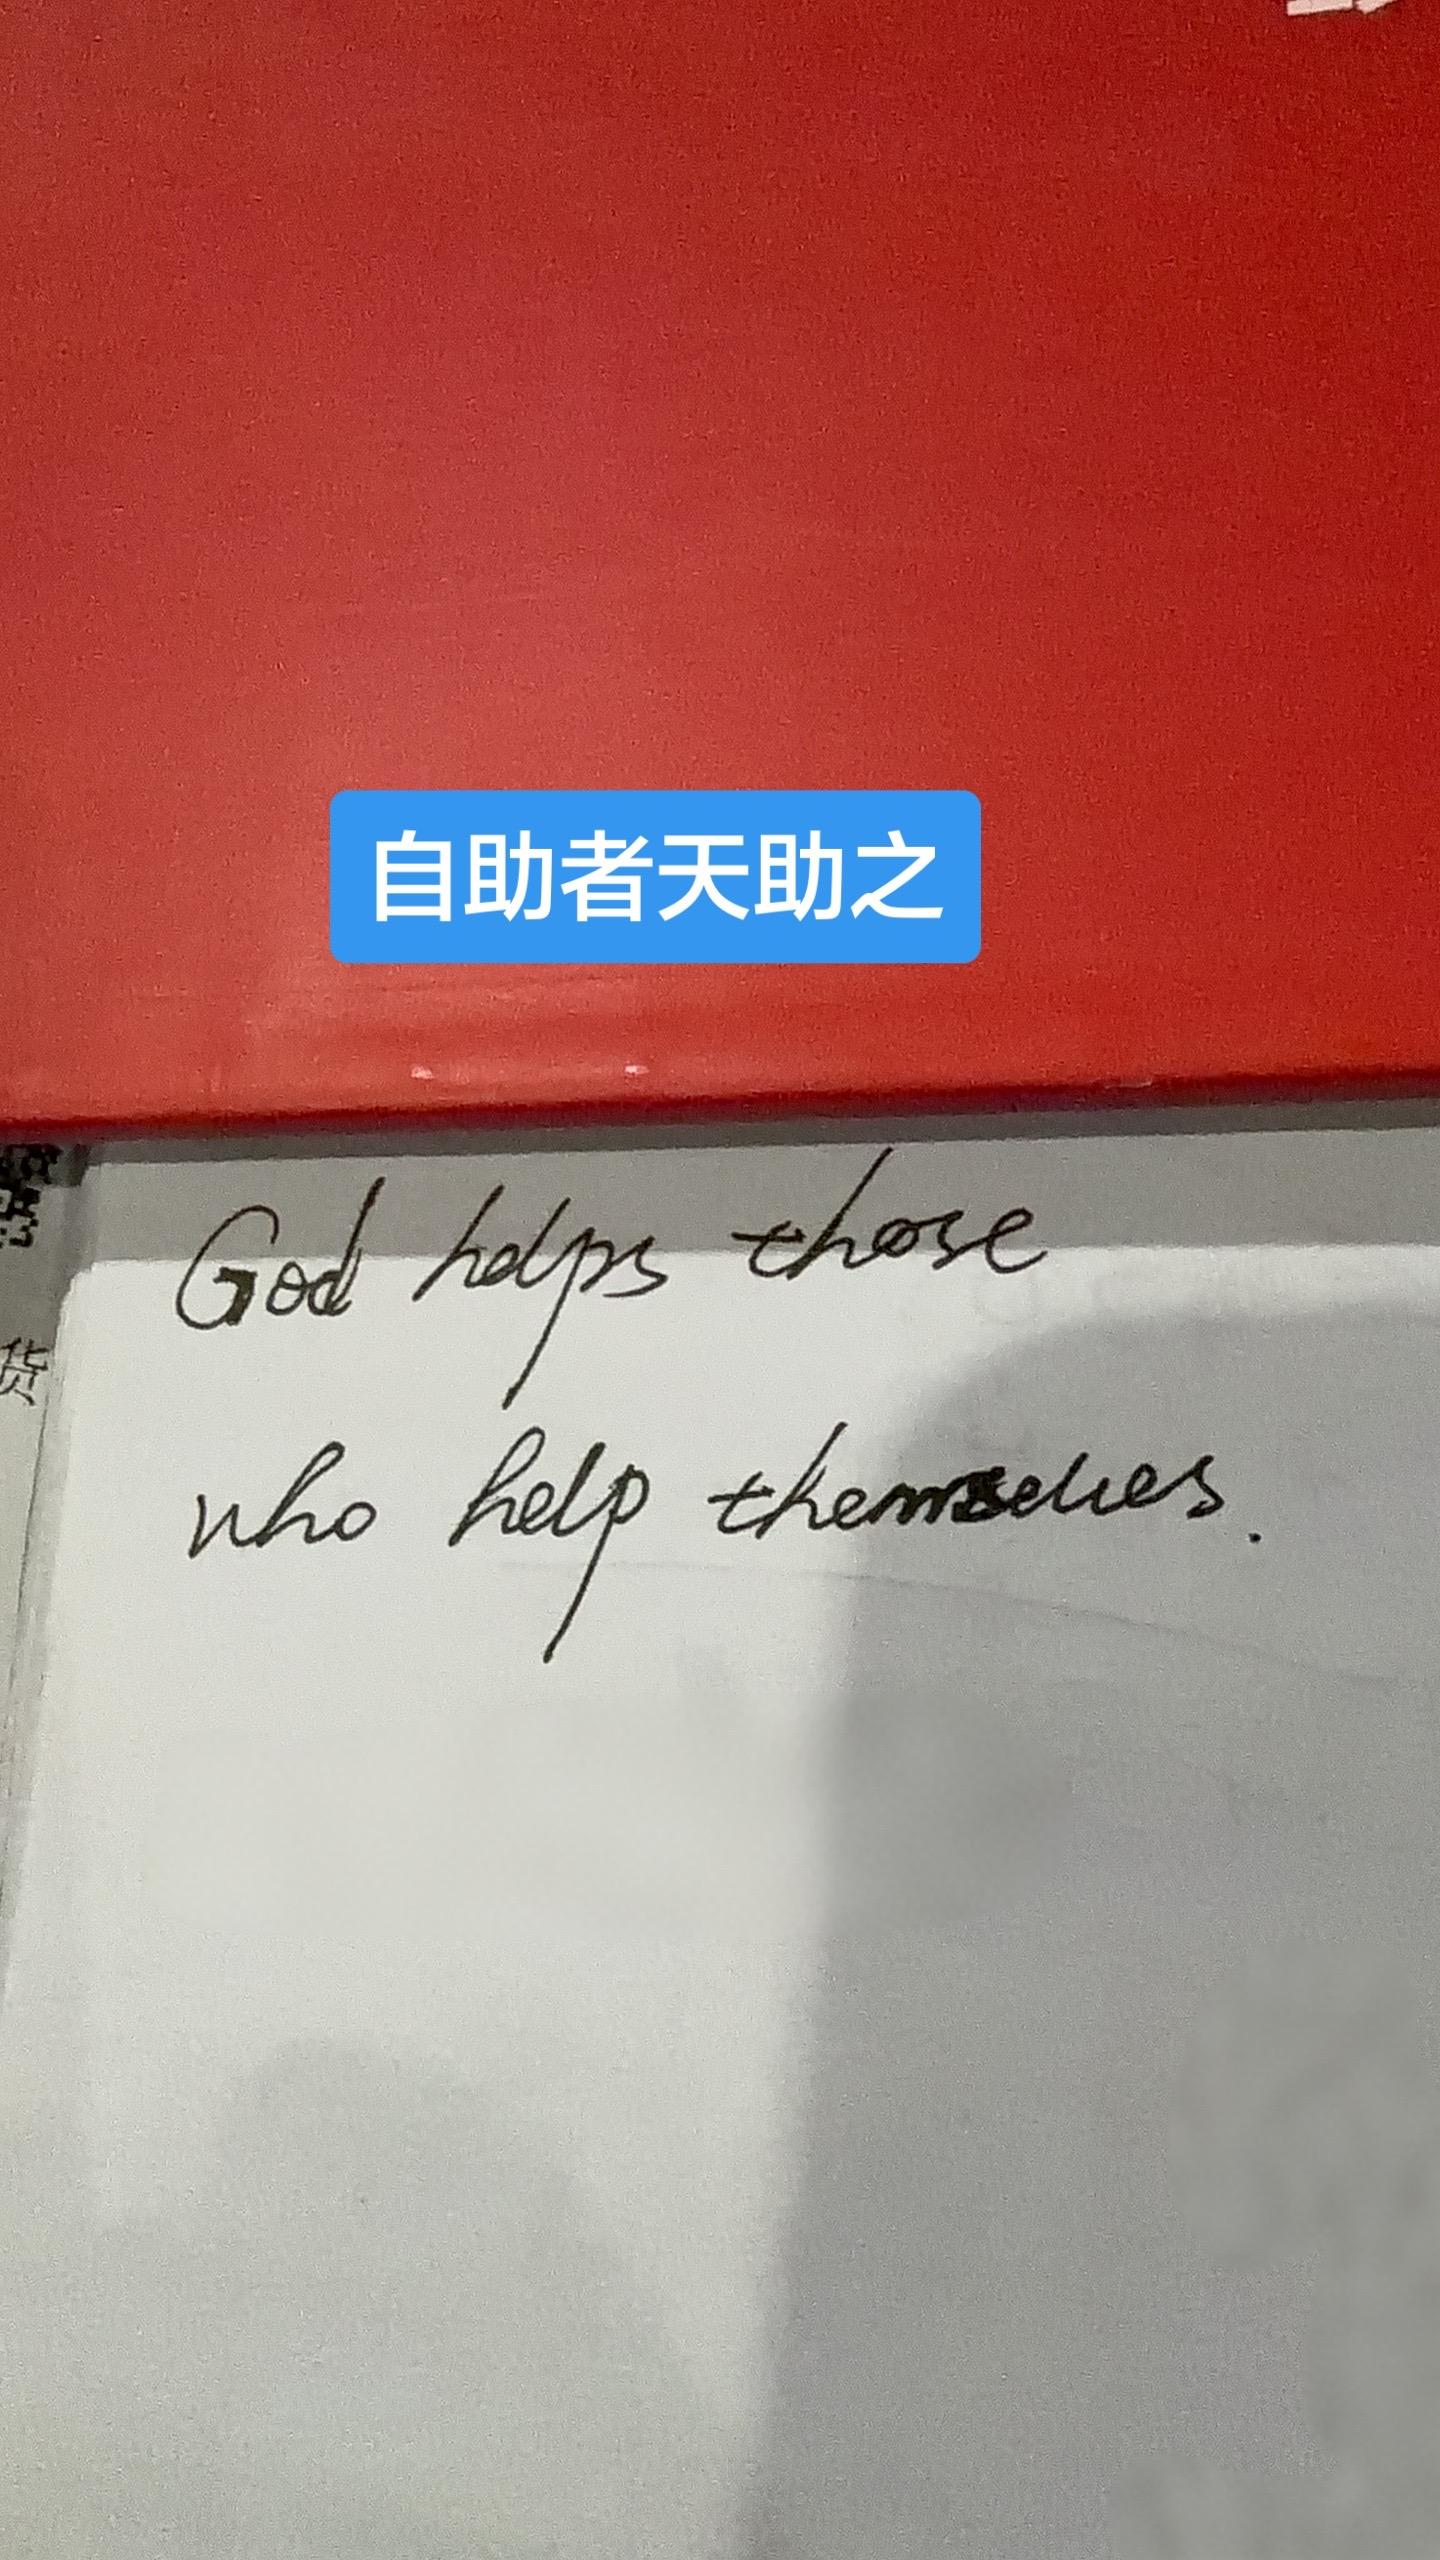 自助者天助之
God helps those
who help themselves.
货